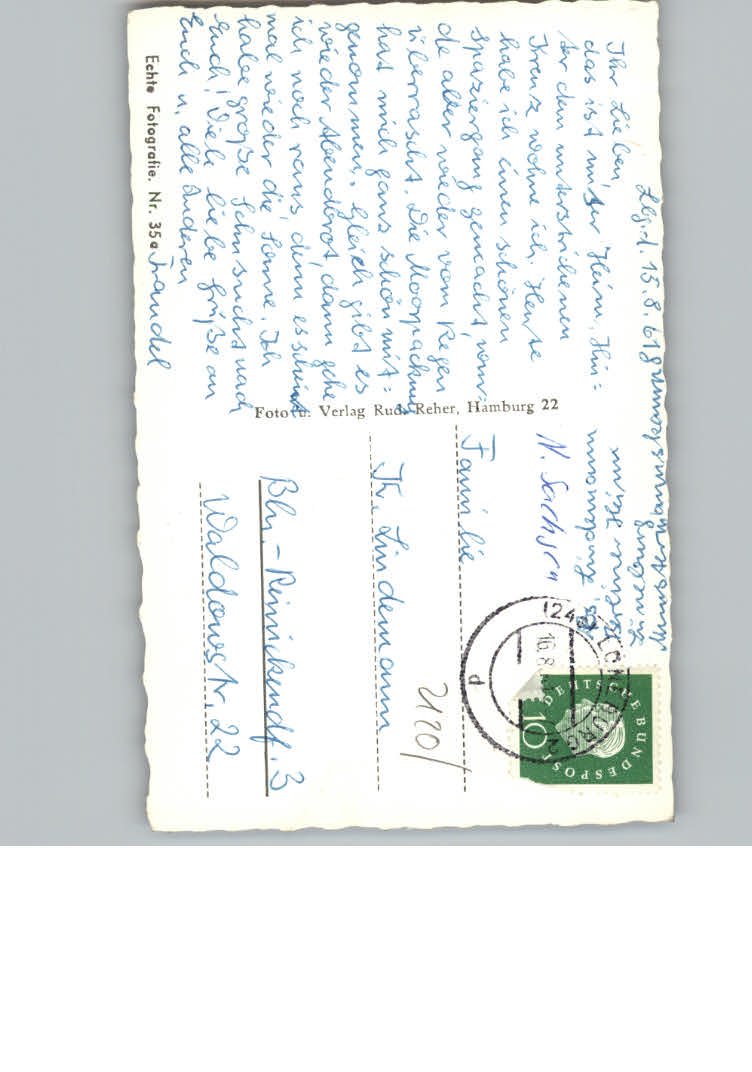 Lbg. d. 15.8.61
Ihr Lieben,
das ist unser Heim, Hin=
ter dem unterstrichenen
Kreuz wohne ich. Heute
habe ich einen schönen
Spaziergang gemacht, wur=
de aber wieder vom Regen
überrascht. Die Moorpackung
hat mich ganz schön mit=
genommen. Gleich gibt es
wieder Abendbrot, dann gehe
ich noch raus denn es scheint
mal wieder die Sonne. Ich
habe große Sehnsucht nach
Euch! Viele liebe Grüße an
Euch u. alle anderen
Traudel
Echte Fotografie. Nr. 35a
Foto u. Verlag Rud. Reher, Hamburg 22
N. Sachsen
Familie
Th. Lindemann
Bln.-Reinickendf. 3
Waldowstr. 22
2120/
(24a) LÜNEBURG 2
16.8.
d
DEUTSCHE BUNDESPOST
10